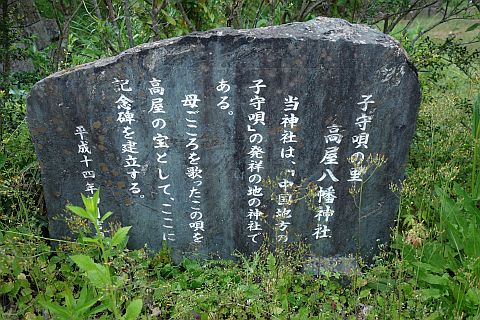 子守唄の里
高屋八幡神社
当神社は、「中国地方の
子守唄」の発祥の地の神社で
ある。
母ごころを歌ったこの唄を
高屋の宝として、ここに
記念碑を建立する。
平成十四年